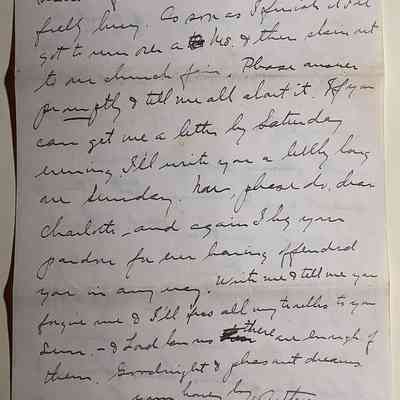 fully busy. As soon as I finish it I'll
got to run over a & then clean out
to our church fair. Please answer
promptly & tell me all about it. If you
can get me a letter by Saturday
evening I'll write you a long
one Sunday. Now, please do, dear
Charlotte, and again I beg your
pardon for ever having offended
you in any way. Write me & tell me you
forgive me & I'll all my troubles to you
- & Lord knows there are enough of
them. Goodnight & pleasant dreams
your honey boy